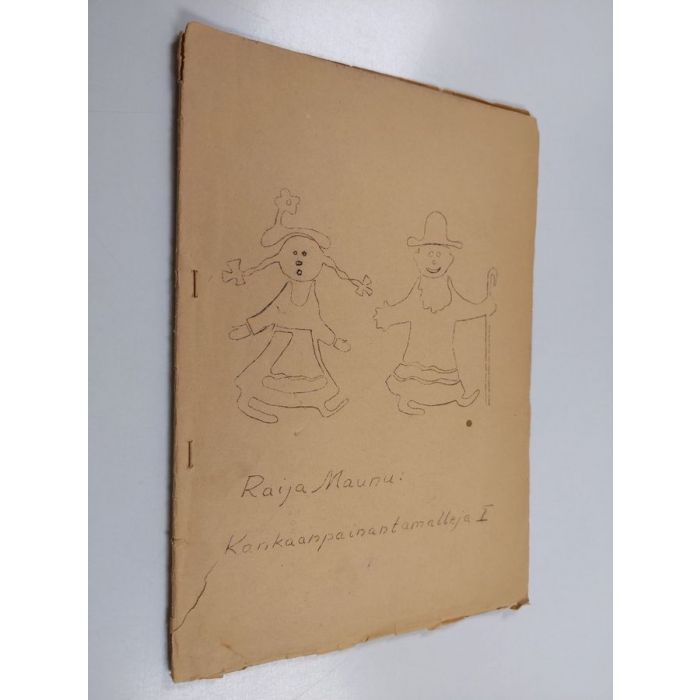 Raija Maunu:
Kankaanpainantamalleja I